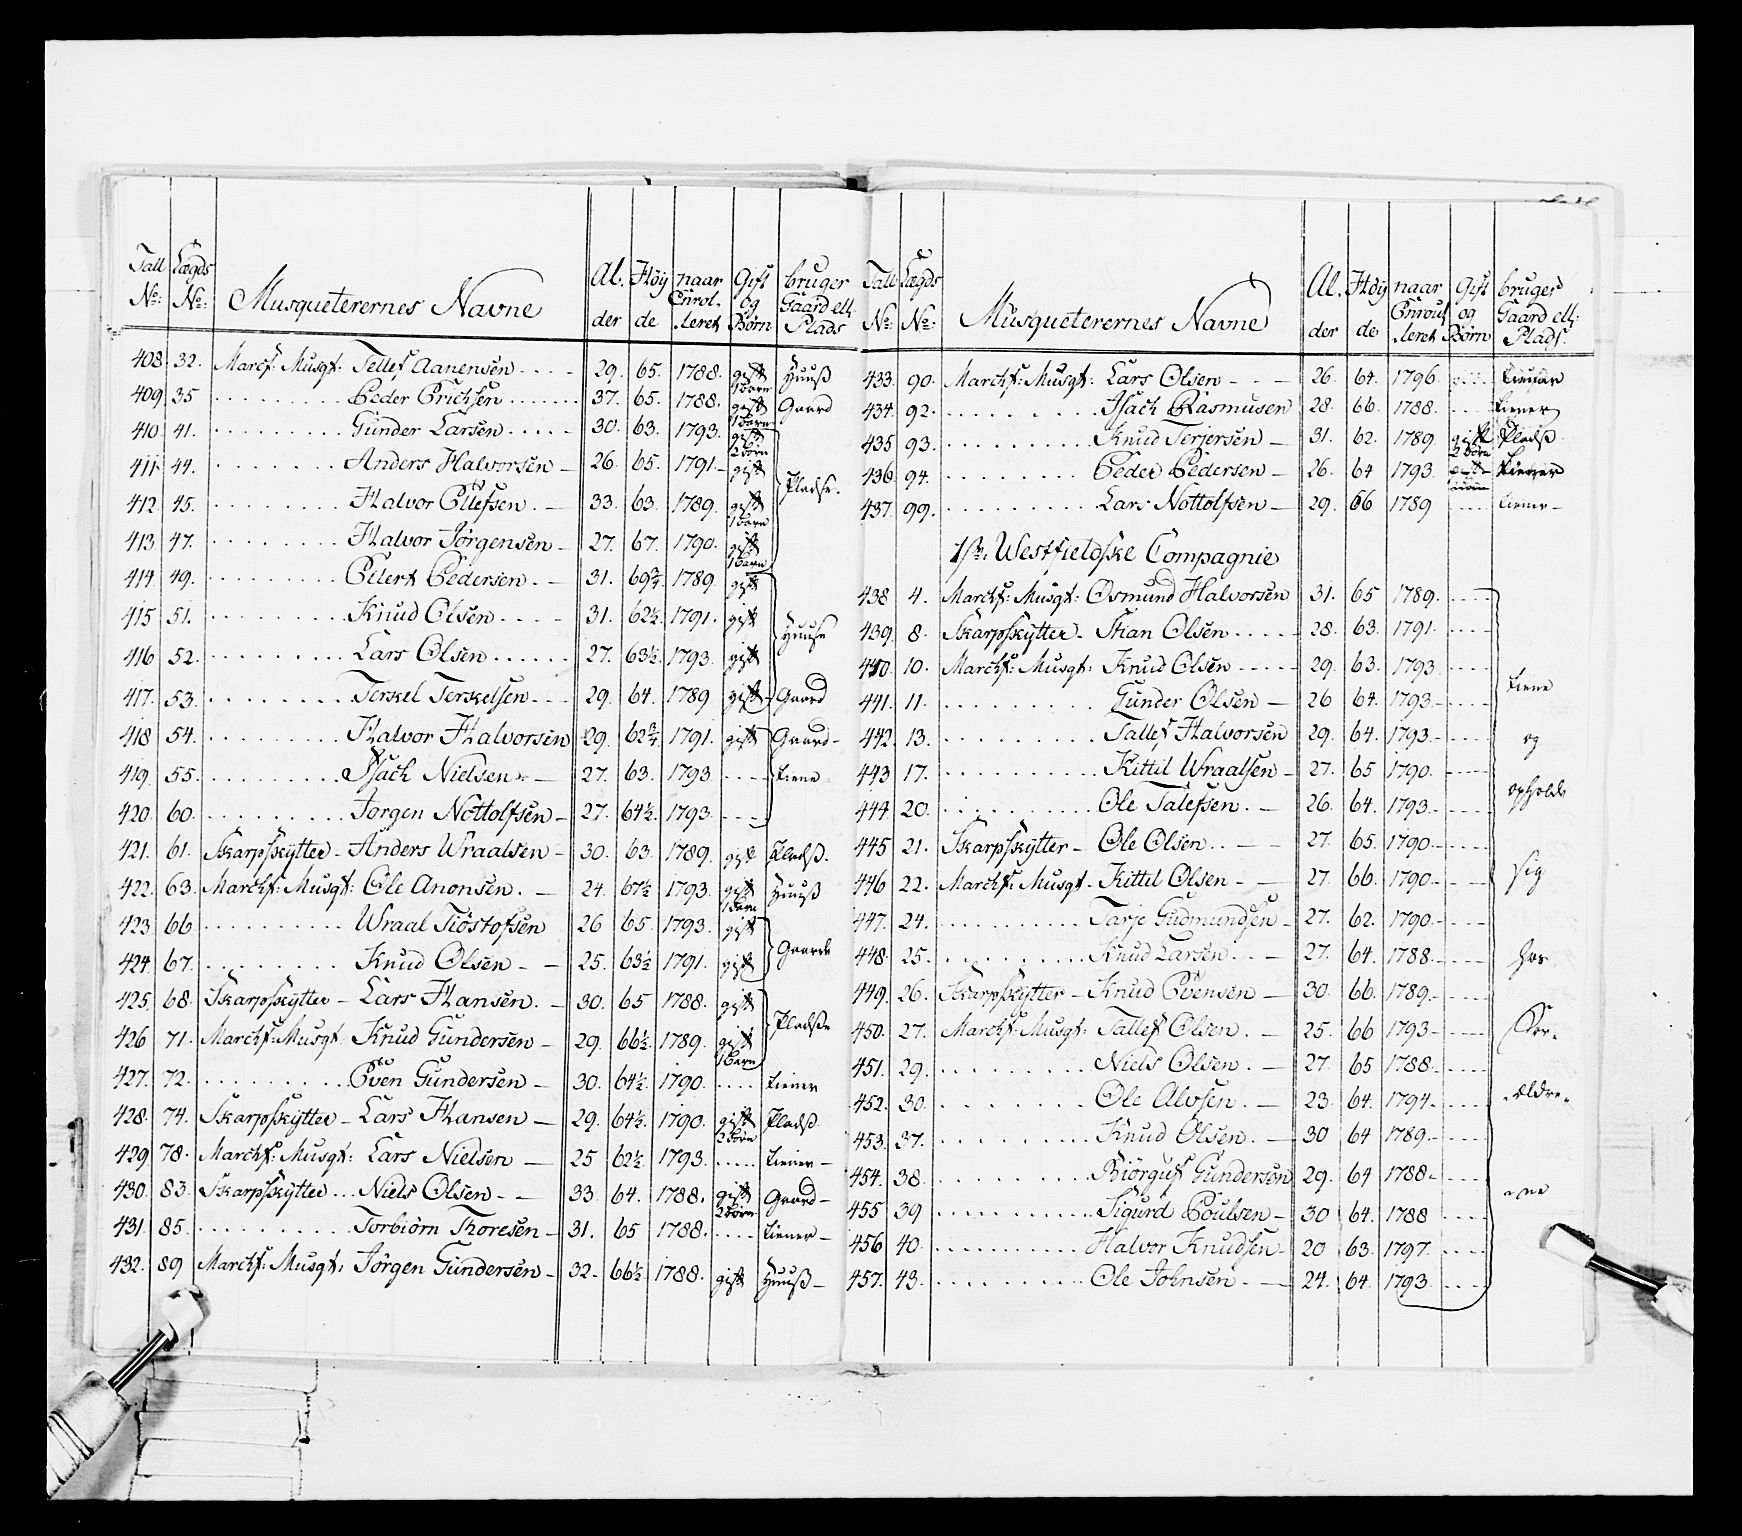 Tall No: Lægds No: Musqueterernes Navne Al. der Høy de naar Enrol. leret Gift og Børn bruger Gaard ell. Plads
408. 32. Marchf: Musqt: Tellef Aanensen 29. 65. 1788. gift 1 barn Huuß
409. 35 Peder Erichsen 37. 65. 1788. gift 1 barn Gaard
410. 41. Gunder Larsen 30. 63. 1793. gift 2 børn
411. 44. Anders Halvorsen 26. 65. 1791. gift Pladse.
412. 45. Halvor Ellefsen 33. 63. 1789. gift 1 barn
413. 47. Halvor Jørgensen 27. 67. 1790. gift 1 barn
414. 49. Eilert Pedersen 31. 69¾ 1789. gift
415 51. Knud Olsen 31. 62½ 1791. gift Huuse
416 52. Lars Olsen 27. 63½ 1793. gift
417. 53. Terkel Terkelsen 29. 64. 1789 gift Gaard
418 54. Halvor Halvorsen 29. 62¾ 1791. gift Gaard
419. 55. Isach Nielsen 27. 63. 1793 tiene
420. 60. Jørgen Nottolfsen 27. 64½ 1793.
421. 61. Skarpskÿtter Anders Wraalsen 30. 63. 1789. gift Pladß.
422. 63. Marchf: Musqt: Ole Anonsen. 24. 67½ 1793. gift 1 barn Huuß
423 66 Wraal Tiöstofsen 26 65. 1793. gift
424. 67. Knud Olsen 25. 63½ 1791. gift Gaarde
425. 68. Skarpskÿtter Lars Hansen. 30. 65 1788. gift
426 71. Marchf: Musqt: Knud Gundersen 29. 66½ 1789. gift 1 barn Pladße
427. 72. Even Gundersen 30. 64½ 1790. tiener
428. 74. Skarpskÿtter Lars Hansen 29. 64½ 1790. gift 2 børn Pladß.
429 78. Marchf: Musqt: Lars Nielsen 25 62½ 1793. tiener
430. 83. Skarpskÿtter Niels Olsen 33. 64. 1788. gift 2 børn Gaard
431. 85. Torbiörn Thoresen 31. 65 1788. tiener
432. 89 Marchf: Musqt: Jörgen Gundersen 32. 66½ 1788. gift Huuß
Tall No: Lægds No: Musqueterernes Navne Al. der Høy de naar Enroul leret Gift og Børn bruger Gaard ell: Plads.
433. 90. Marchf: Musqt: Lars Olsen 26. 64. 1796 tiener
434. 92. Isach Rasmusen 28. 66. 1788. tiener
435 93. Knud Terjersen 31. 62. 1789. gift 2 børn Pladß
436. 94. Peder Pedersen 26. 64 1793. tiener
437. 99. Lars Nottolfsen 29. 66 1789 tiener
1ste Westfieldske Compagnie
438 4. Marchf: Musqt: Osmund Halvorsen 31. 65 1789.
439. 8. Skarpskÿtter Stian Olsen 28. 63. 1791.
440 10. Marchf: Musqt: Knud Olsen 29. 63. 1793
441. 11. Gunder Olsen 26 64. 1793. tiene
442. 13. Tallef Halvorsen 29. 64. 1793. og
443 17. Kittil Wraalsen 27. 65 1790. opholde
444. 20. Ole Talefsen. 26. 64. 1793.
445 21. Skarpskÿtter Ole Olsen. 27. 65. 1790.
446 22. Marchf: Musqt. Kittil Olsen 27. 66. 1790. sig
447. 24. Tarje Gudmundsen 27. 62. 1790.
448. 25. Knud Larsen. 27. 64. 1788. hos
449. 26. Skarpskÿtter Knud Evensen 30. 66. 1789.
450. 27. Marchf: Musqt: Tallef Olsen. 25. 66 1793 For-
451. 29. Niels Olsen. 27. 65 1788.
452. 30. Ole Alvsen. 23. 64. 1794. ældre-
453. 37. Knud Olsen. 30 64 1789.
454. 38. Biörguf Gundersen 29. 64 1788.
455 39 Sigurd Poulsen 30 64. 1788 ne
456 40. Halvor Knudsen 20 63. 1797.
457. 43. Ole Johnsen. 24. 64. 1793.